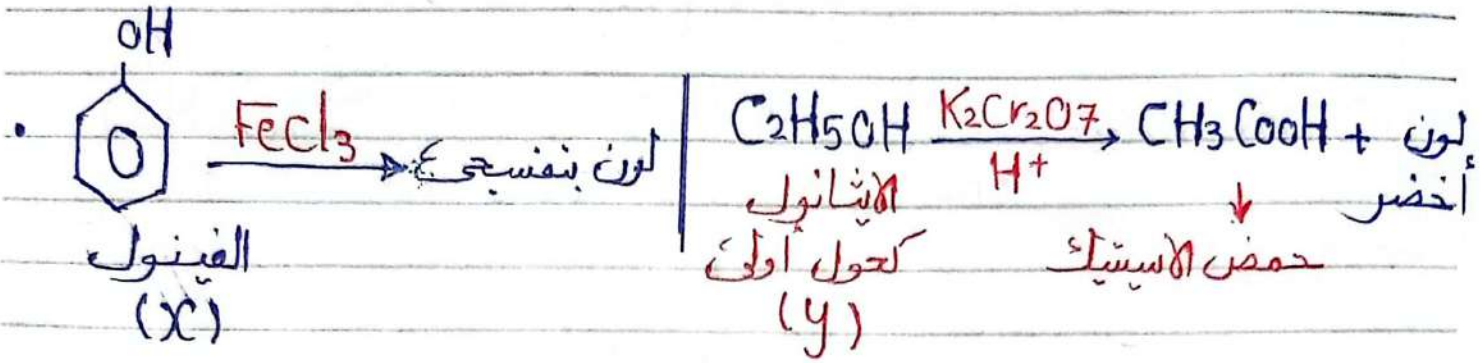 OH
FeCl3 لون بنفسجى
الفينول
(X)
C2H5OH K2Cr2O7 CH3COOH + لون
H+
أخضر
الايثانول
كحول أولى حمض الاسيتيك
(y)